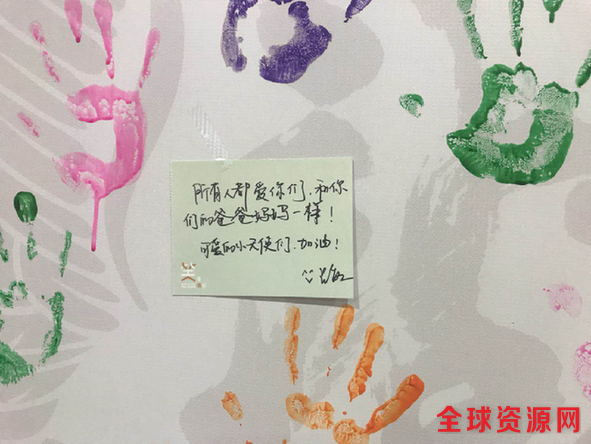 所有人都爱你们，和你
们的爸爸妈妈一样！
可爱的小天使们，加油！
全球资源网